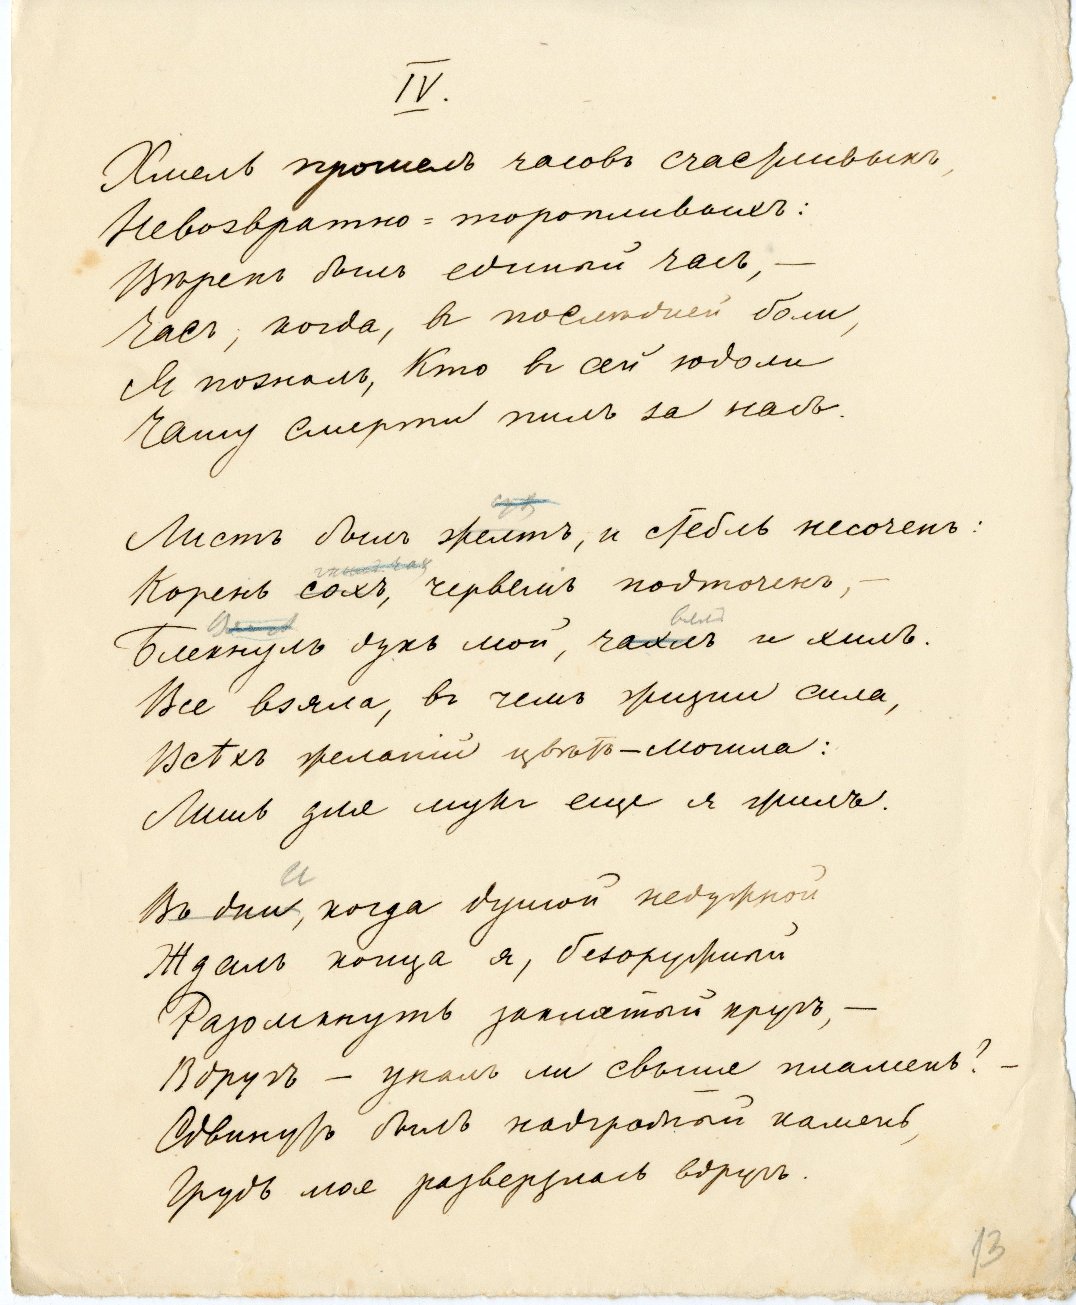 IV.
Хмель прошелъ часовъ счастливыхъ,
Невозвратно=торопливыхъ:
Вѣренъ былъ единый часъ,—
Часъ, когда, въ послѣдней боли,
Я позналъ, Кто въ сей юдоли
Чашу смерти пилъ за насъ.
сух
Листъ былъ желтъ, и стебль несоченъ:
Корень сохъ, червемъ подточенъ,—
вялъ
Блекнулъ духъ мой, чахлъ и хилъ.
Все взяла, въ чемъ жизни сила,
Всѣхъ желаній цвѣтъ—могила:
Лишь для мукъ еще я жилъ.
И
Въ дни, когда душой недужной
Ждалъ конца я, безоружный
Разомкнуть заклятый кругъ,—
Вдругъ — упалъ ли свыше пламень?—
Сдвинутъ былъ надгробный камень,
Грудь моя разверзлась вдругъ.
13